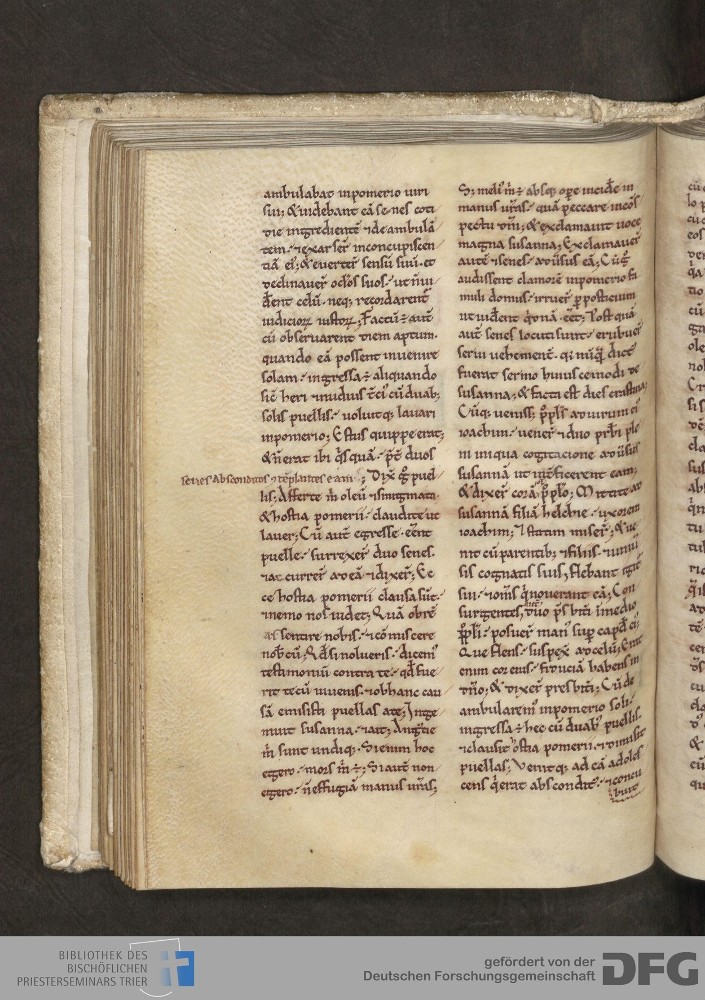 ambulabat inpomerio uiri
sui; & uidebant eā senes coti
die ingredientē ⁊deambulā
tem. ⁊exarser̄ inconcupiscen
tiā ei; & euerter̄ sensū suū. et
declinauer̄ oclōs suos. ut n̄ ui
der̄ent celū. neq; recordarent̄
iudicioꝝ iustoꝝ; Factū ÷ aut̄
cū obseruarent diem aptum.
quando eā possent inuenire
solam. ingressa ÷ aliquando
sic̄ heri ⁊nudius t̄ci cū duab;
solis puellis. uoluitq; lauari
inpomerio; Estus quippe erat;
& n̄ erat ibi q̄squā. p̄t̄ duos
senes absconditos ⁊ cōtēplantes eam; Dix̄ g̊ puel
lis; Afferte m̄ oleū ⁊smigmata.
& hostia pomerii claudite ut
lauer; Cū aut̄ egresse eēnt
puelle. surrexer̄ duo senes.
⁊accurrer̄ ad eā ⁊dixer̄; Ec
ce hostia pomerii clausa sūt.
⁊nemo nos uidet; Quā obrē
assentire nobis. ⁊cōmiscere
nob̄cū; Qd̄ si nolueris. dicem̄
testimoniū contra te. qd̄ fue
rit tecū iuuenis. ⁊obhanc cau
sā emisisti puellas ate; Inge
muit susanna. ⁊ait; Angustie
m̄ sunt undiq;. Si enim hoc
egero. mors m̄ ÷; Si aut̄ non
egero. n̄ effugiā manus ur̄as;
S; meli' m̄ ÷ absq; ope incider̄e in
manus ur̄as. quā peccare incōs
pectu dn̄i; & exclamauit uoce
magna susanna; Exclamauer̄
autē ⁊senes. aduersus eā; Cū g̊
audissent clamorē inpomerio fa
muli domus. irruer̄ p posticium
ut uider̄ent q̄dnā eēt; Postquā
aut̄ senes locuti sunt. erubuer̄
serui uehement̄. q̄a nūq̄ dict'
fuerat sermo huiuscemodi de
susanna; & facta est dies crastina;
Cūq; uenisset ppl̄s aduirum ei'
ioachim. uener̄ ⁊duo prb̄i ple
ni iniqua cogitatione aduersus
susannā ut int̄ficerent eam;
& dixer̄ corā ppl̄o; Mittite ad
susannā filiā helchie. uxorem
ioachim; & statim miser̄; & ue
nit cū parentib; ⁊filiis. ⁊uniū
sis cognatis suis; flebant igit̄
sui. ⁊om̄s q̄ nouerant eā; Con
surgentes aut̄ duo ps̄brī inmedio
ppl̄i. posuer̄ man' sup capd̄ ei;
Que flens. suspex̄ ad celū; Erat
enim cor eius. fiduciā habens in
dn̄o; & dixer̄ presbrī; Cū de
ambularem' inpomerio soli.
ingressa ÷ hec cū duab' puellis.
⁊clausit ostia pomerii. ⁊dimisit
puellas; Venitq; ad eā adoles
cens q̄ erat abscondit'. ⁊concu
buit
BIBLIOTHEK DES
BISCHÖFLICHEN
PRIESTERSEMINARS TRIER
gefördert von der
Deutschen Forschungsgemeinschaft
DFG